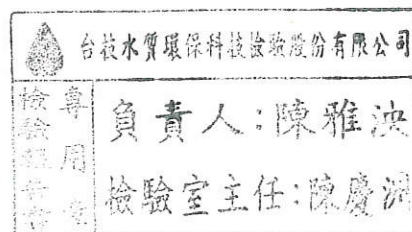 台技水質環保科技檢驗股份有限公司
檢驗
專用章
負責人：陳雅泱
檢驗室主任：陳慶洲